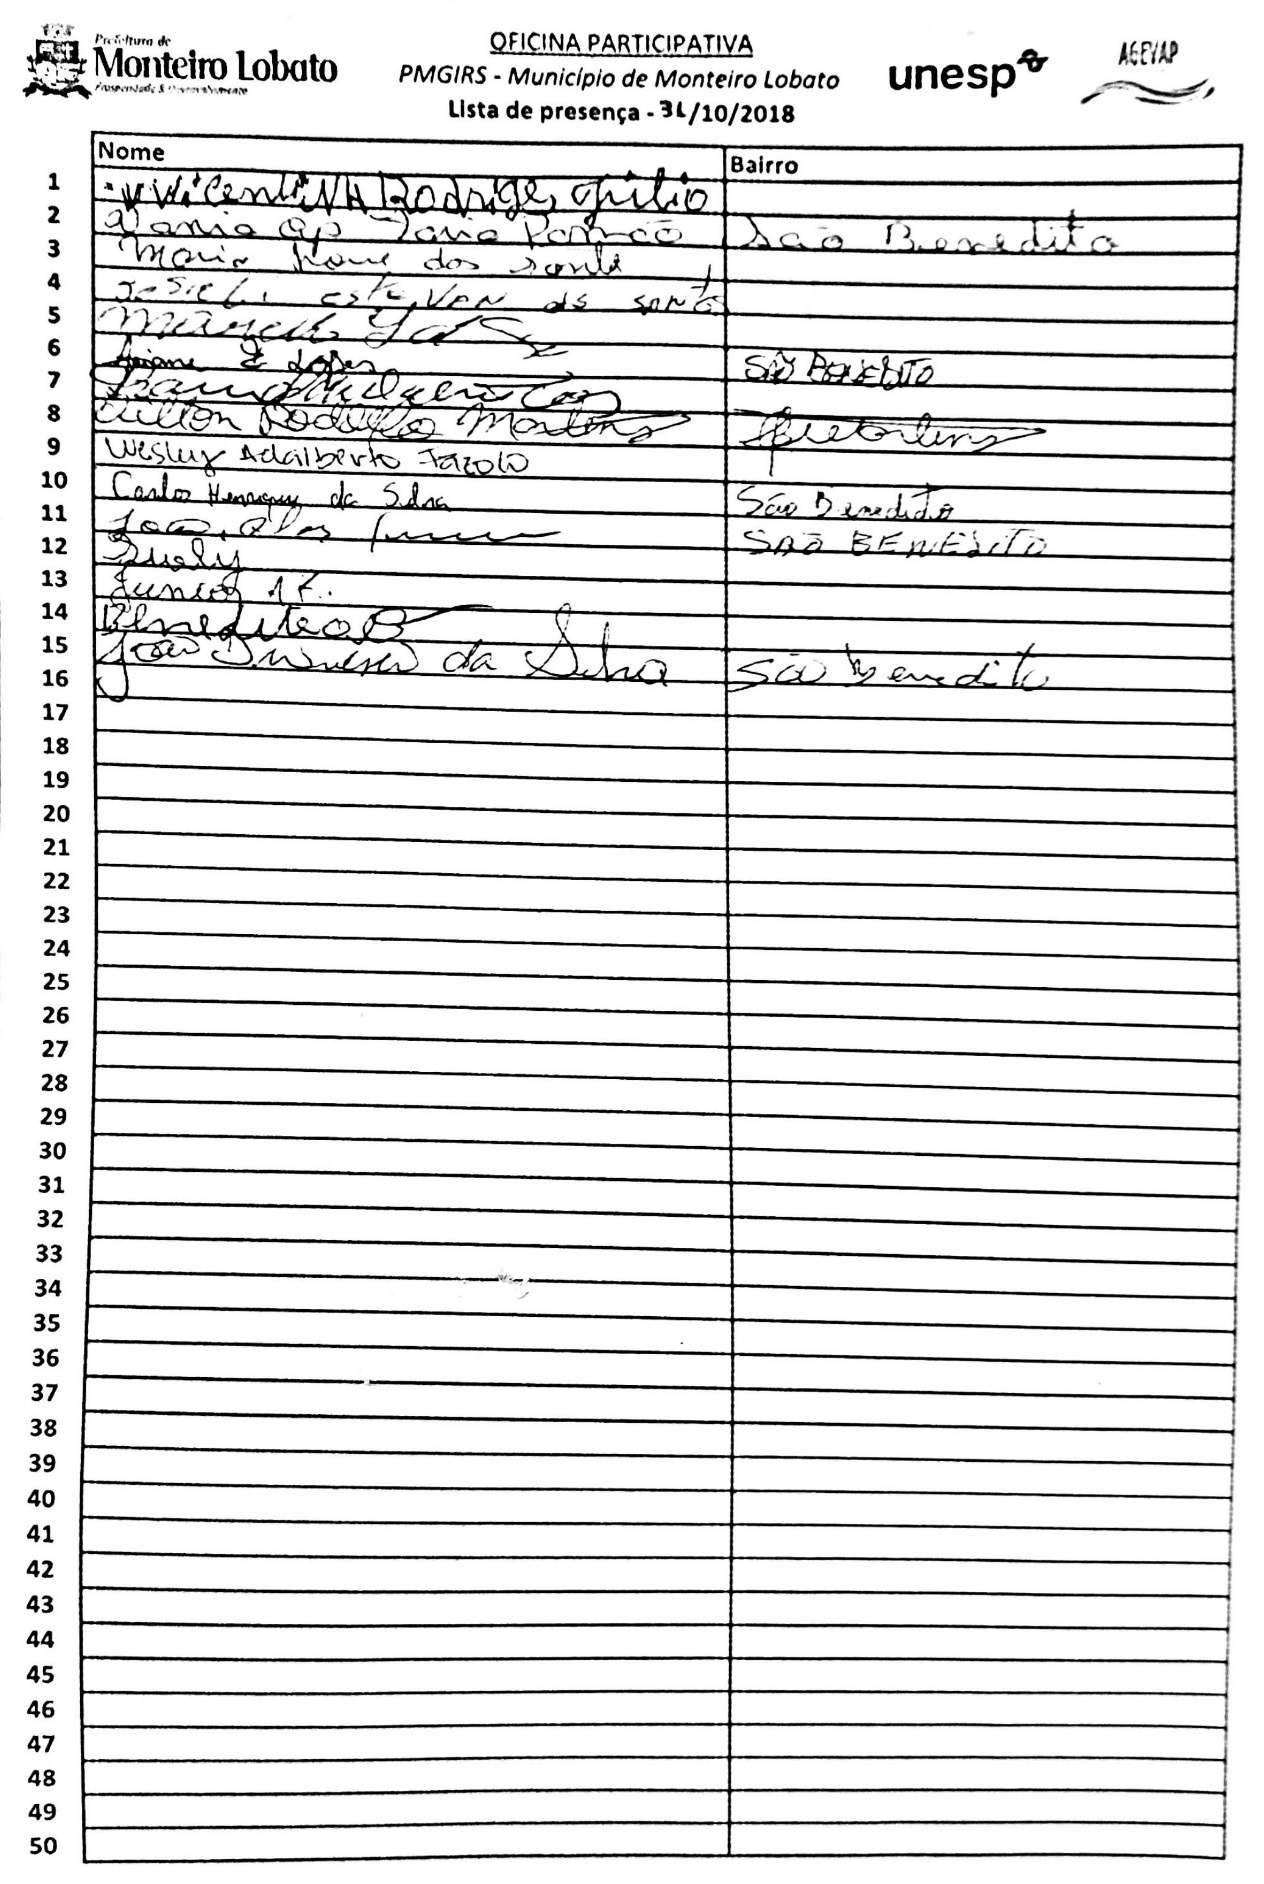 Prefeitura de
Monteiro Lobato
Prosperidade & Desenvolvimento
OFICINA PARTICIPATIVA
PMGIRS - Município de Monteiro Lobato
Lista de presença - 31/10/2018
unesp
AGEVAP
Nome Bairro
1 VicentiNA Rodriges
2 Vania Ap São Benedito
3 Maria dos
4 estevan ds santo
5
6 Ariane Lopes SÃO BENEDITO
7
8 Rodolfo Martins
9 Wesley Adalberto
10 Carlos Henrique da Silva São Benedito
11 João SÃO BENEDITO
12 Suely
13 Junior
14 Benedito
15 João da Silva São Benedito
16
17
18
19
20
21
22
23
24
25
26
27
28
29
30
31
32
33
34
35
36
37
38
39
40
41
42
43
44
45
46
47
48
49
50